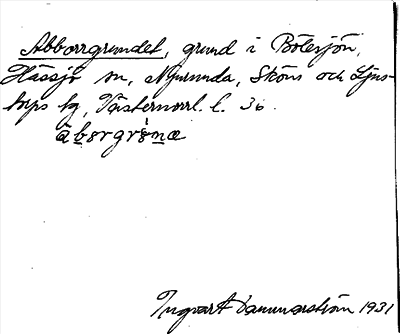 Abborrgrundet, grund i Bötesjön,
Hässjö sn, Njurunda, Sköns och Ljus-
torps tg, Västernorrl. l. 36.
åbɷrgrɷ̀næ
Ingvart Dammarström 1931